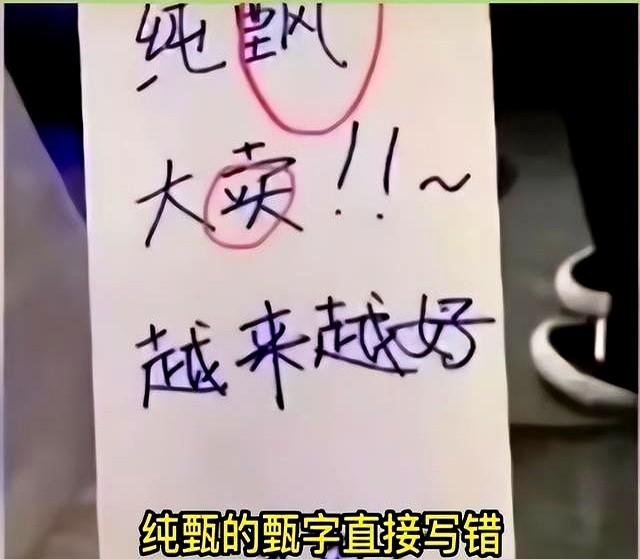 纯
大卖!!~
越来越好
纯甄的甄字直接写错